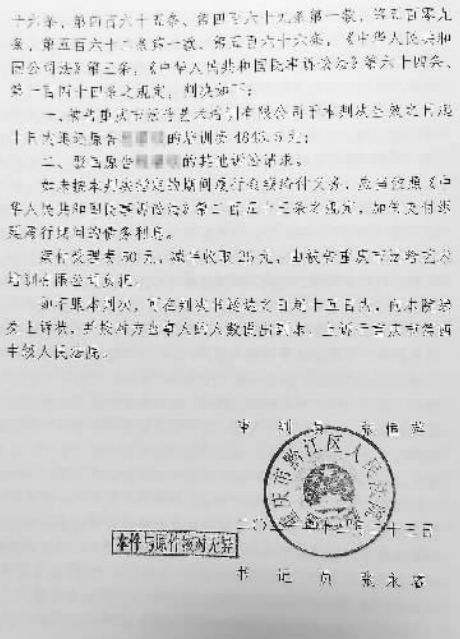 十六条、第四百六十五条、第四百六十九条第一款、第五百零九
条、第五百六十二条第一款、第五百六十六条，《中华人民共和
国公司法》第三条，《中华人民共和国民事诉讼法》第六十四条、
第一百四十四条之规定，判决如下：
一、被告重庆市 艺术培训有限公司于本判决生效之日起
十日内退还原告 的培训费4843.5元；
二、驳回原告 的其他诉讼请求。
如未按本判决指定的期间履行金钱给付义务，应当依照《中
华人民共和国民事诉讼法》第二百五十三条之规定，加倍支付迟
延履行期间的债务利息。
案件受理费50元，减半收取25元，由被告重庆市 艺术
培训有限公司负担。
如不服本判决，可在判决书送达之日起十五日内，向本院递
交上诉状，并按对方当事人的人数提出副本，上诉于重庆市第四
中级人民法院。
审 判 员 张
重庆市黔江区人民法院
二〇二 年十二月二十三日
本件与原件核对无异
书 记 员 张永